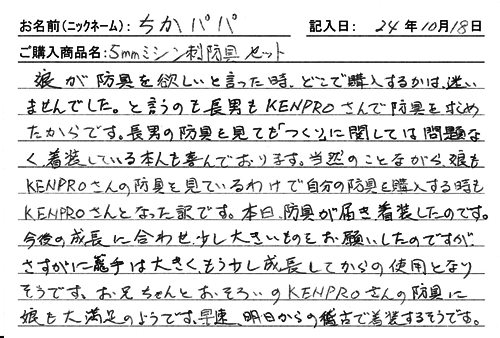 お名前(ニックネーム): ちかパパ 記入日: 24年10月18日
ご購入商品名: 5mmミシン刺防具セット
娘が防具を欲しいと言った時、どこで購入するかは、迷い
ませんでした。と言うのも長男もKENPROさんで防具を求め
たからです。長男の防具を見ても「つくり」に関しては問題な
く、着装している本人も喜んでおります。当然のことながら、娘も
KENPROさんの防具を見ているわけで自分の防具を購入する時も
KENPROさんとなった訳です。本日、防具が届き、着装したのです。
今後の成長に合わせ、少し大きいものをお願いしたのですが、
さすがに篭手は大きく、もう少し成長してからの使用となり
そうです。お兄ちゃんとおそろいのKENPROさんの防具に
娘も大満足のようです。早速、明日からの稽古で着装するそうです。